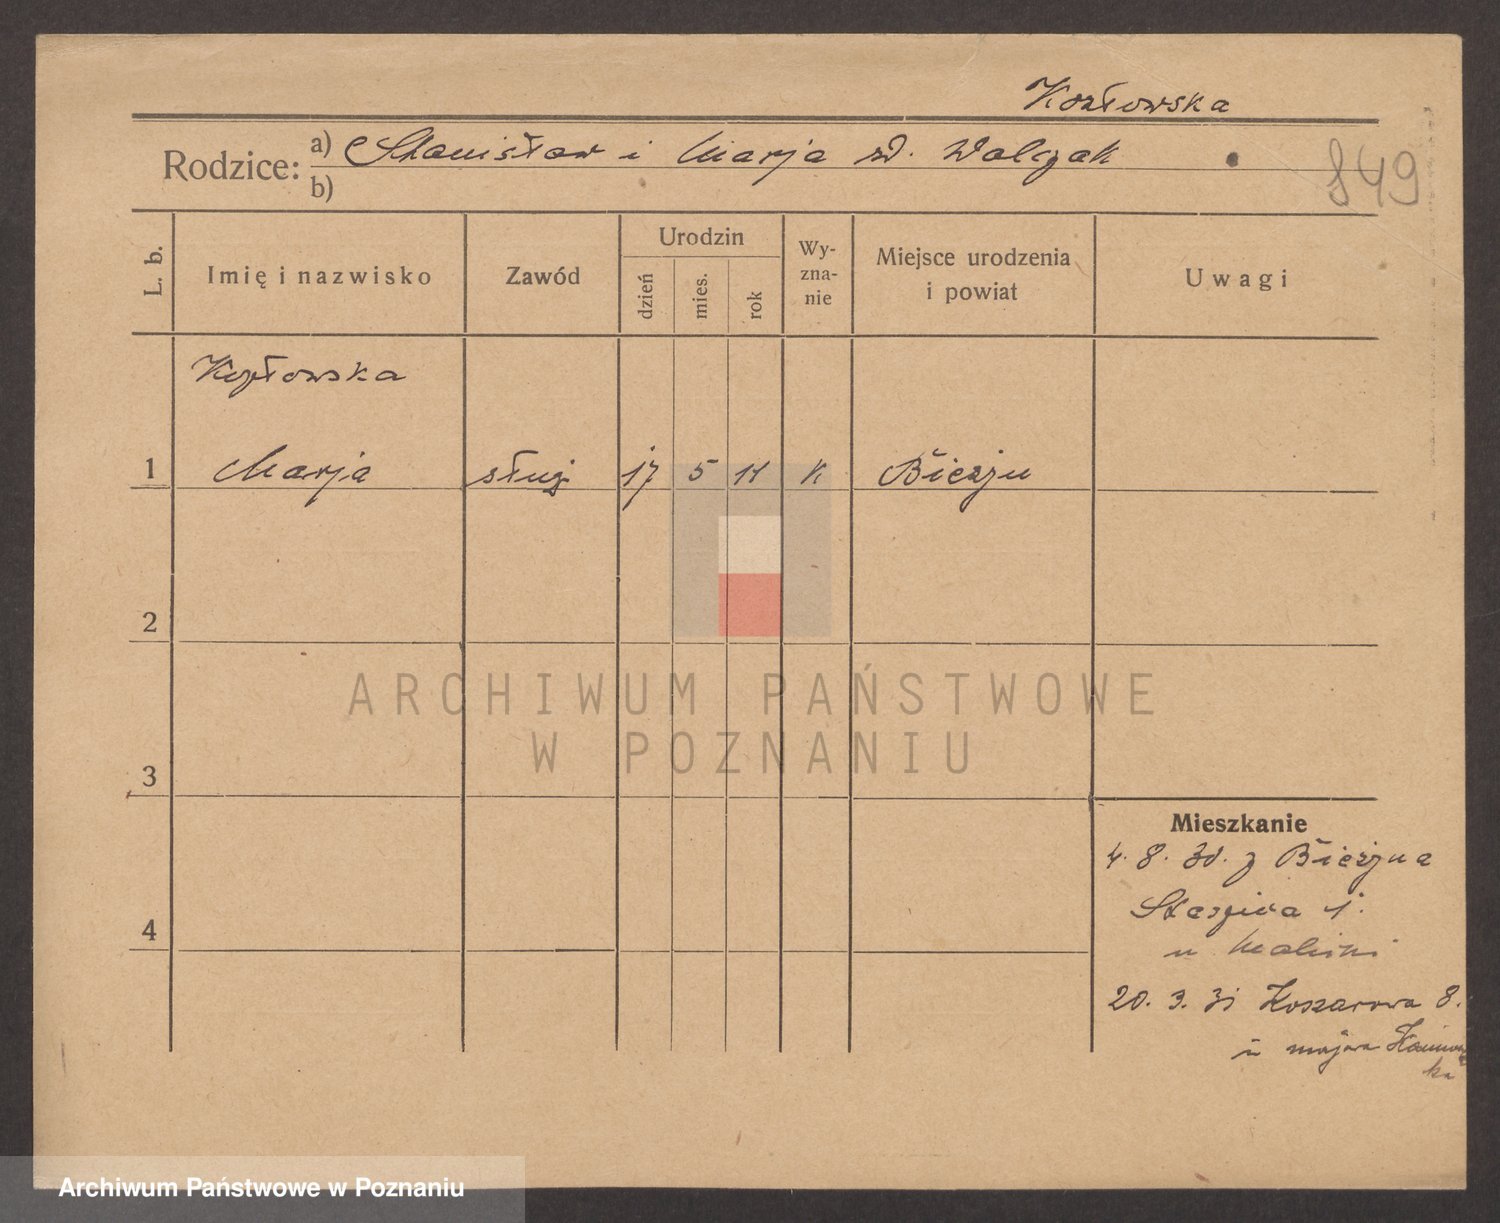 Kozłowska
Rodzice: a) Stanisław i Marja zd. Walczak
b)
849
L. b.
Imię i nazwisko
Zawód
Urodzin
dzień
mies.
rok
Wy-
zna-
nie
Miejsce urodzenia
i powiat
Uwagi
Kozłowska
1 Marja służ. 17 5 11 K Bieżyń
2
3
4
Mieszkanie
4. 8. 30. z Bieżynia
Staszica 1.
u
20. 3. 31 Koszarowa 8.
u majora
ARCHIWUM PAŃSTWOWE
W POZNANIU
Archiwum Państwowe w Poznaniu